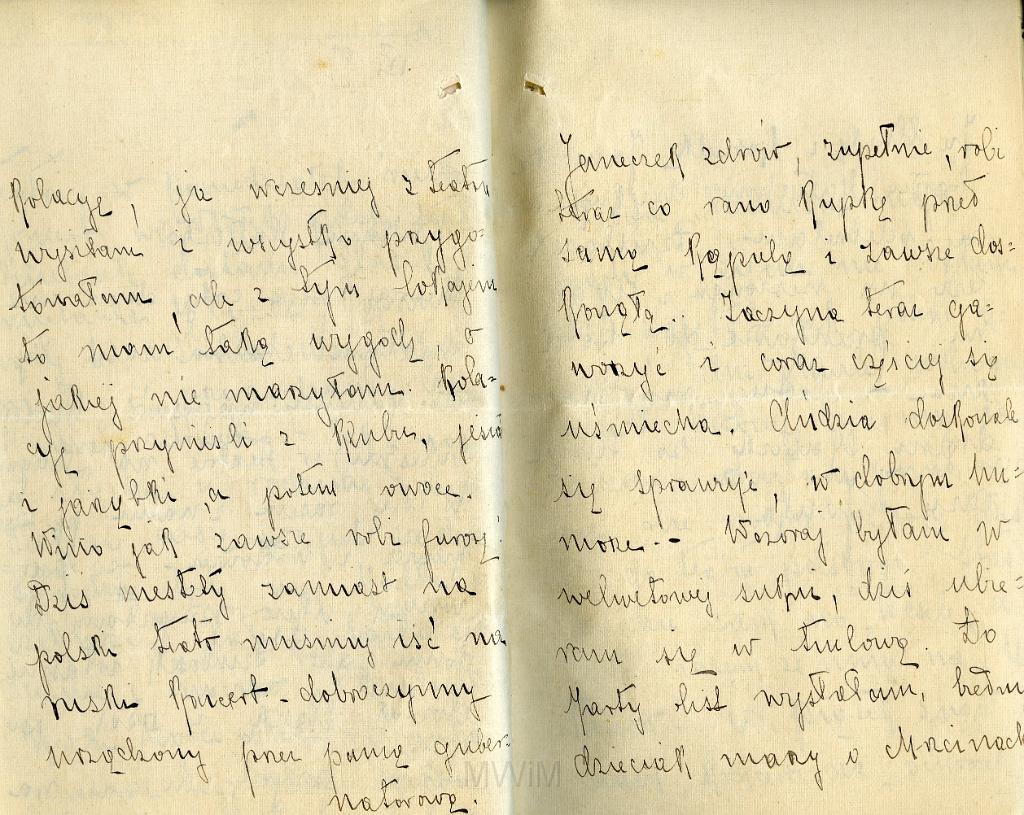 Kolację, ja wcześniej z teatru
wyszłam i wszystko przygo-
towałam, ale z tym lokajem
to mam taką wygodę, o
jakiej nie marzyłam. Kola-
cję przynieśli z klubu, jesiotr
i jarząbki, a potem owoce.
Wino jak zawsze robi furorę!
Dziś niestety zamiast na
polski teatr musimy iść na
ruski koncert - dobroczynny
urządzony przez panią guber-
natorową.
Janeczek zdrów, zupełnie, robi
teraz co rano kupkę przed
samą kąpielą i zawsze dos-
konałą.. Zaczyna teraz ga-
worzyć i coraz częściej się
uśmiecha. Dudzia doskonale
się sprawuje, w dobrym hu-
morze. - Wczoraj byłam w
welwetowej sukni, dziś ubie-
ram się w tiulową. Do
Marty list wysłałam, biedny
dzieciak marzy o
MWiM